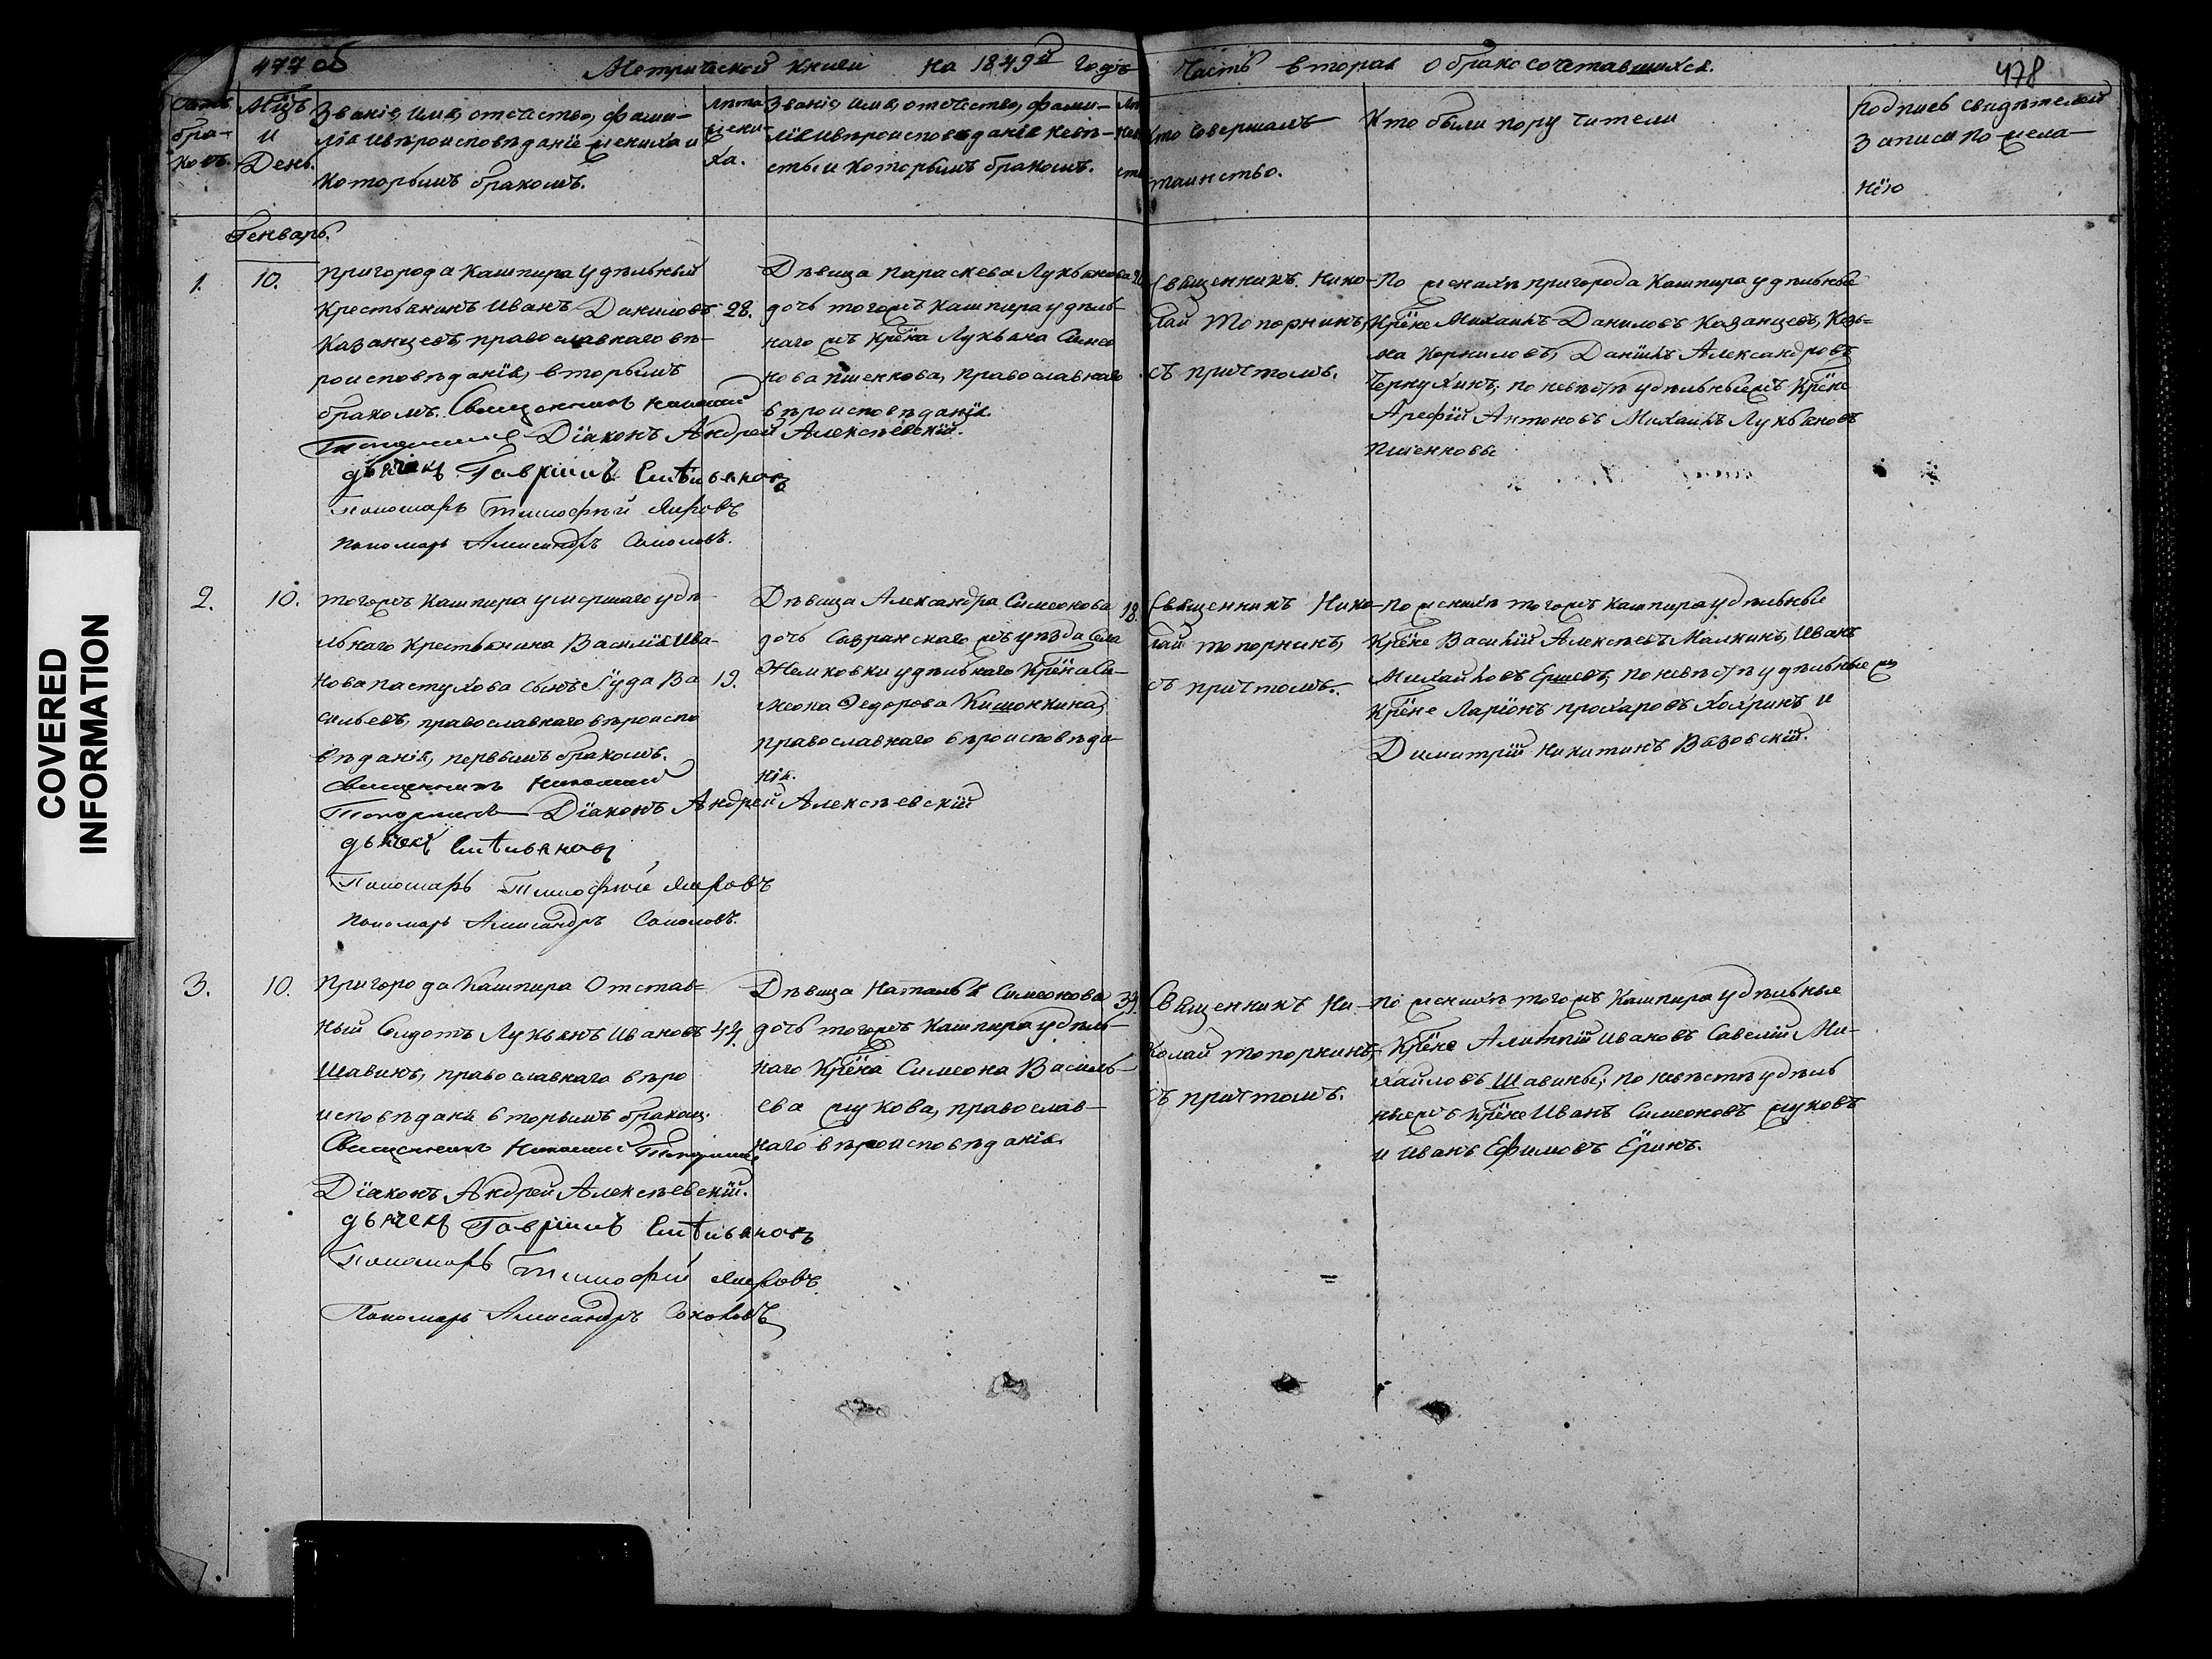 COVERED
INFORMATION
477 об
Метрической книги на 1849й годъ
Часть вторая о бракосочетавшихся.
478
Счетъ
бра-
ковъ.
Мцъ
и
День.
Званіе, имя, отечество, фами-
лія и вѣроисповѣданіе жениха и
которымъ бракомъ.
лѣта
жени-
ха.
Званіе, имя, отечество, фами-
лія и вѣроисповѣданіе невѣ-
сты и которымъ бракомъ.
Кто совершалъ
таинство.
Кто были поручители
Подпись свидѣтелей
записи по жела-
нію
Генварь.
1.
10.
Пригорода Кашпира удѣльный
крестьянинъ Иванъ Даниловъ
Казанцевъ, православнаго вѣ-
роисповѣданія, вторымъ
бракомъ. Священникъ Николай
Топорнинъ Діаконъ Андрей Алексѣевскій.
дьячекъ Гавріилъ Емельяновъ
Пономарь Тимофѣй
Пономарь Александръ Соколовъ.
28.
Дѣвица Параскева Лукьянова
дочь тогожъ Кашпира удѣль-
наго жъ крѣна Лукьяна Симео
нова Пшенкова, православнаго
вѣроисповѣданія.
Священникъ Нико-
лай Топорнинъ,
съ причтомъ.
По женихѣ пригорода Кашпира удѣльные
крѣне Михаилъ Даниловъ Казанцевъ, Козь-
ма Корниловъ, Даніилъ Александровъ
Чернухинъ; по невѣстѣ удѣльныежъ крѣне
Арефій Антоновъ Михаилъ Лукьяновъ
Пшенковы
2.
10.
тогожъ Кашпира умершаго удѣ-
льнаго крестьянина Василія Ива-
нова Пастухова сынъ Іуда Ва
сильевъ, православнаго вѣроиспо
вѣданія, первымъ бракомъ.
Священникъ Николай
Топорнинъ Діаконъ Андрей Алексѣевскій
дьячекъ Емельяновъ
Пономарь Тимофѣй
Пономарь Александръ Соколовъ.
19.
Дѣвица Александра Симеонова
дочь Сызранскаго жъ уѣзда села
Жемковки удѣльнаго крѣна Си-
меона Федорова Кишонкина,
православнаго вѣроисповѣда-
нія.
18.
Священникъ Нико-
лай Топорнинъ,
съ причтомъ.
По женихѣ тогожъ Кашпира удѣльные
крѣне Василій Алексѣевъ Малкинъ, Иванъ
Михайловъ Ершовъ; по невѣстѣ удѣльные ж
крѣне Ларіонъ Прохаровъ Хохринъ и
Димитрій Никитинъ Вазовскій.
3.
10.
Пригорода Кашпира Отстав-
ный Солдатъ Лукьянъ Ивановъ
Шавинъ, православнаго вѣро
исповѣданія вторымъ бракомъ.
Священникъ Николай Топорнинъ
Діаконъ Андрей Алексѣевскій.
дьячекъ Гавріилъ Емельяновъ
Пономарь Тимофѣй
Пономарь Александръ Соколовъ
44.
Дѣвица Наталья Симеонова
дочь тогожъ Кашпира удѣль-
наго крѣна Симеона Василь-
ева Жукова, православ-
наго вѣроисповѣданія.
39.
Священникъ Ни-
колай Топорнинъ,
съ причтомъ.
По женихѣ тогожъ Кашпира удѣльные
крѣне Алимпій Ивановъ Савелій Ми-
хайловъ Шавины; по невѣстѣ удѣль
ныежъ крѣне Иванъ Симеоновъ Жуковъ
и Иванъ Ефимовъ Ёринъ.